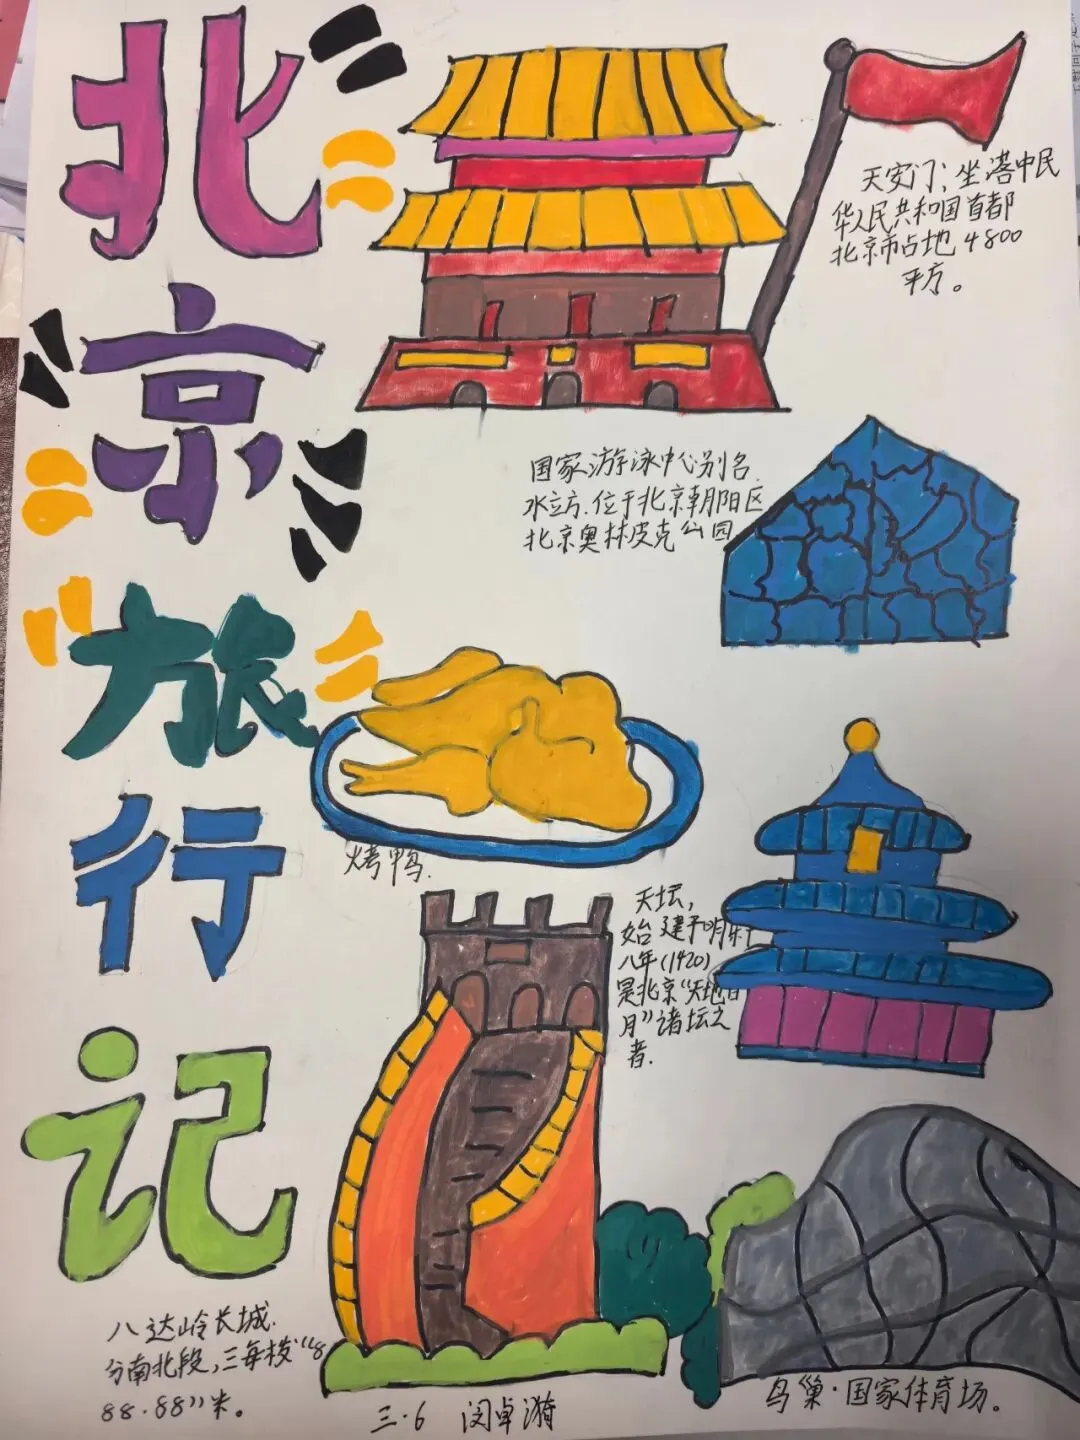 北京旅行记
天安门；坐落中民
华人民共和国首都
北京市占地4800
平方。
国家游泳中心别名
水立方.位于北京朝阳区
北京奥林皮克公园
烤鸭.
天坛,
始建于明
八年(1420)
是北京“天地日
月”诸坛之
者.
八达岭长城.
分南北段,三每
88.88”米。
三.6 闵卓漪
鸟巢·国家体育场。